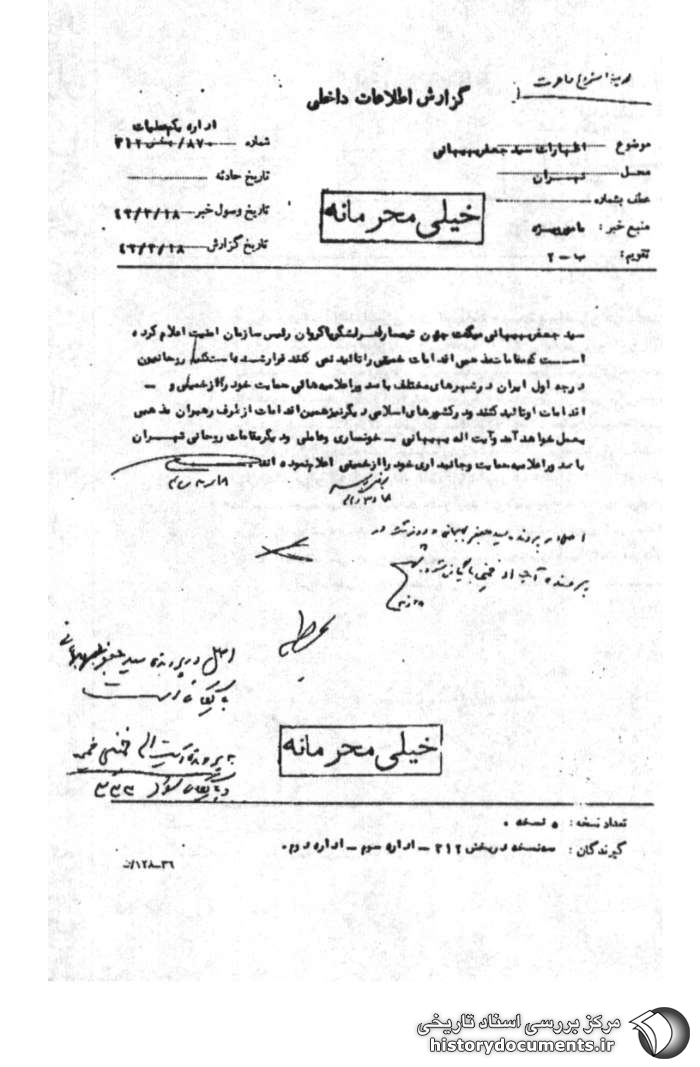 گزارش اطلاعات داخلی
اداره یکم عملیات
موضوع اظهارات سید جعفر بهبهانی
شماره ۸۷۰/بخش ۳۱۲
محل تهران
تاریخ حادثه
عطف بشماره
تاریخ وصول خبر ۴۲/۳/۱۸
خیلی محرمانه
منبع خبر: مامور ویژه
تاریخ گزارش ۴۲/۳/۱۸
تقویم: ب-۲
سید جعفر بهبهانی میگفت چون تیمسار سرلشگر پاکروان رئیس سازمان امنیت اعلام کرده
است که مقامات مذهبی اقدامات خمینی را تائید نمی کنند قرار شده با دستگیری روحانیون
درجه اول ایران در شهرهای مختلف با صدور اعلامیه هائی حمایت خود را از خمینی و -
اقدامات او تائید کنند و در کشورهای اسلامی دیگر نیز همین اقدامات از طرف رهبران مذهبی
بعمل خواهد آمد و آیت اله بهبهانی - خونساری و عاملی و دیگر مقامات روحانی تهران
با صدور اعلامیه حمایت و جانبداری خود را از خمینی اعلام نموده اند
اصل در پرونده سید جعفر بهبهانی
اصل در پرونده سید جعفر بهبهانی
بایگانی است
خیلی محرمانه
به پرونده آیت اله خمینی
بایگانی شود ۳۳۲
تعداد نسخه: ۵ نسخه.
گیرندگان: سه نسخه در بخش ۳۱۲ - اداره سوم - اداره دوم.
۳۶-۱۲۸/ن
مرکز بررسی اسناد تاریخی
historydocuments.ir